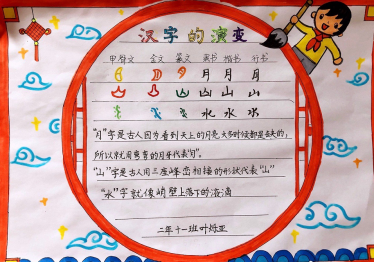 汉字的演变
甲骨文 金文 篆文 隶书 楷书 行书
月 月 月
山 山 山
水 水 水
"月"字是古人因为看到天上的月亮大多时候都是缺的,
所以就用弯弯的月牙代表"月"。
"山"字是古人用三座峰峦相接的形状代表"山"
"水"字就像峭壁上落下的水滴
二年十一班叶烁亚